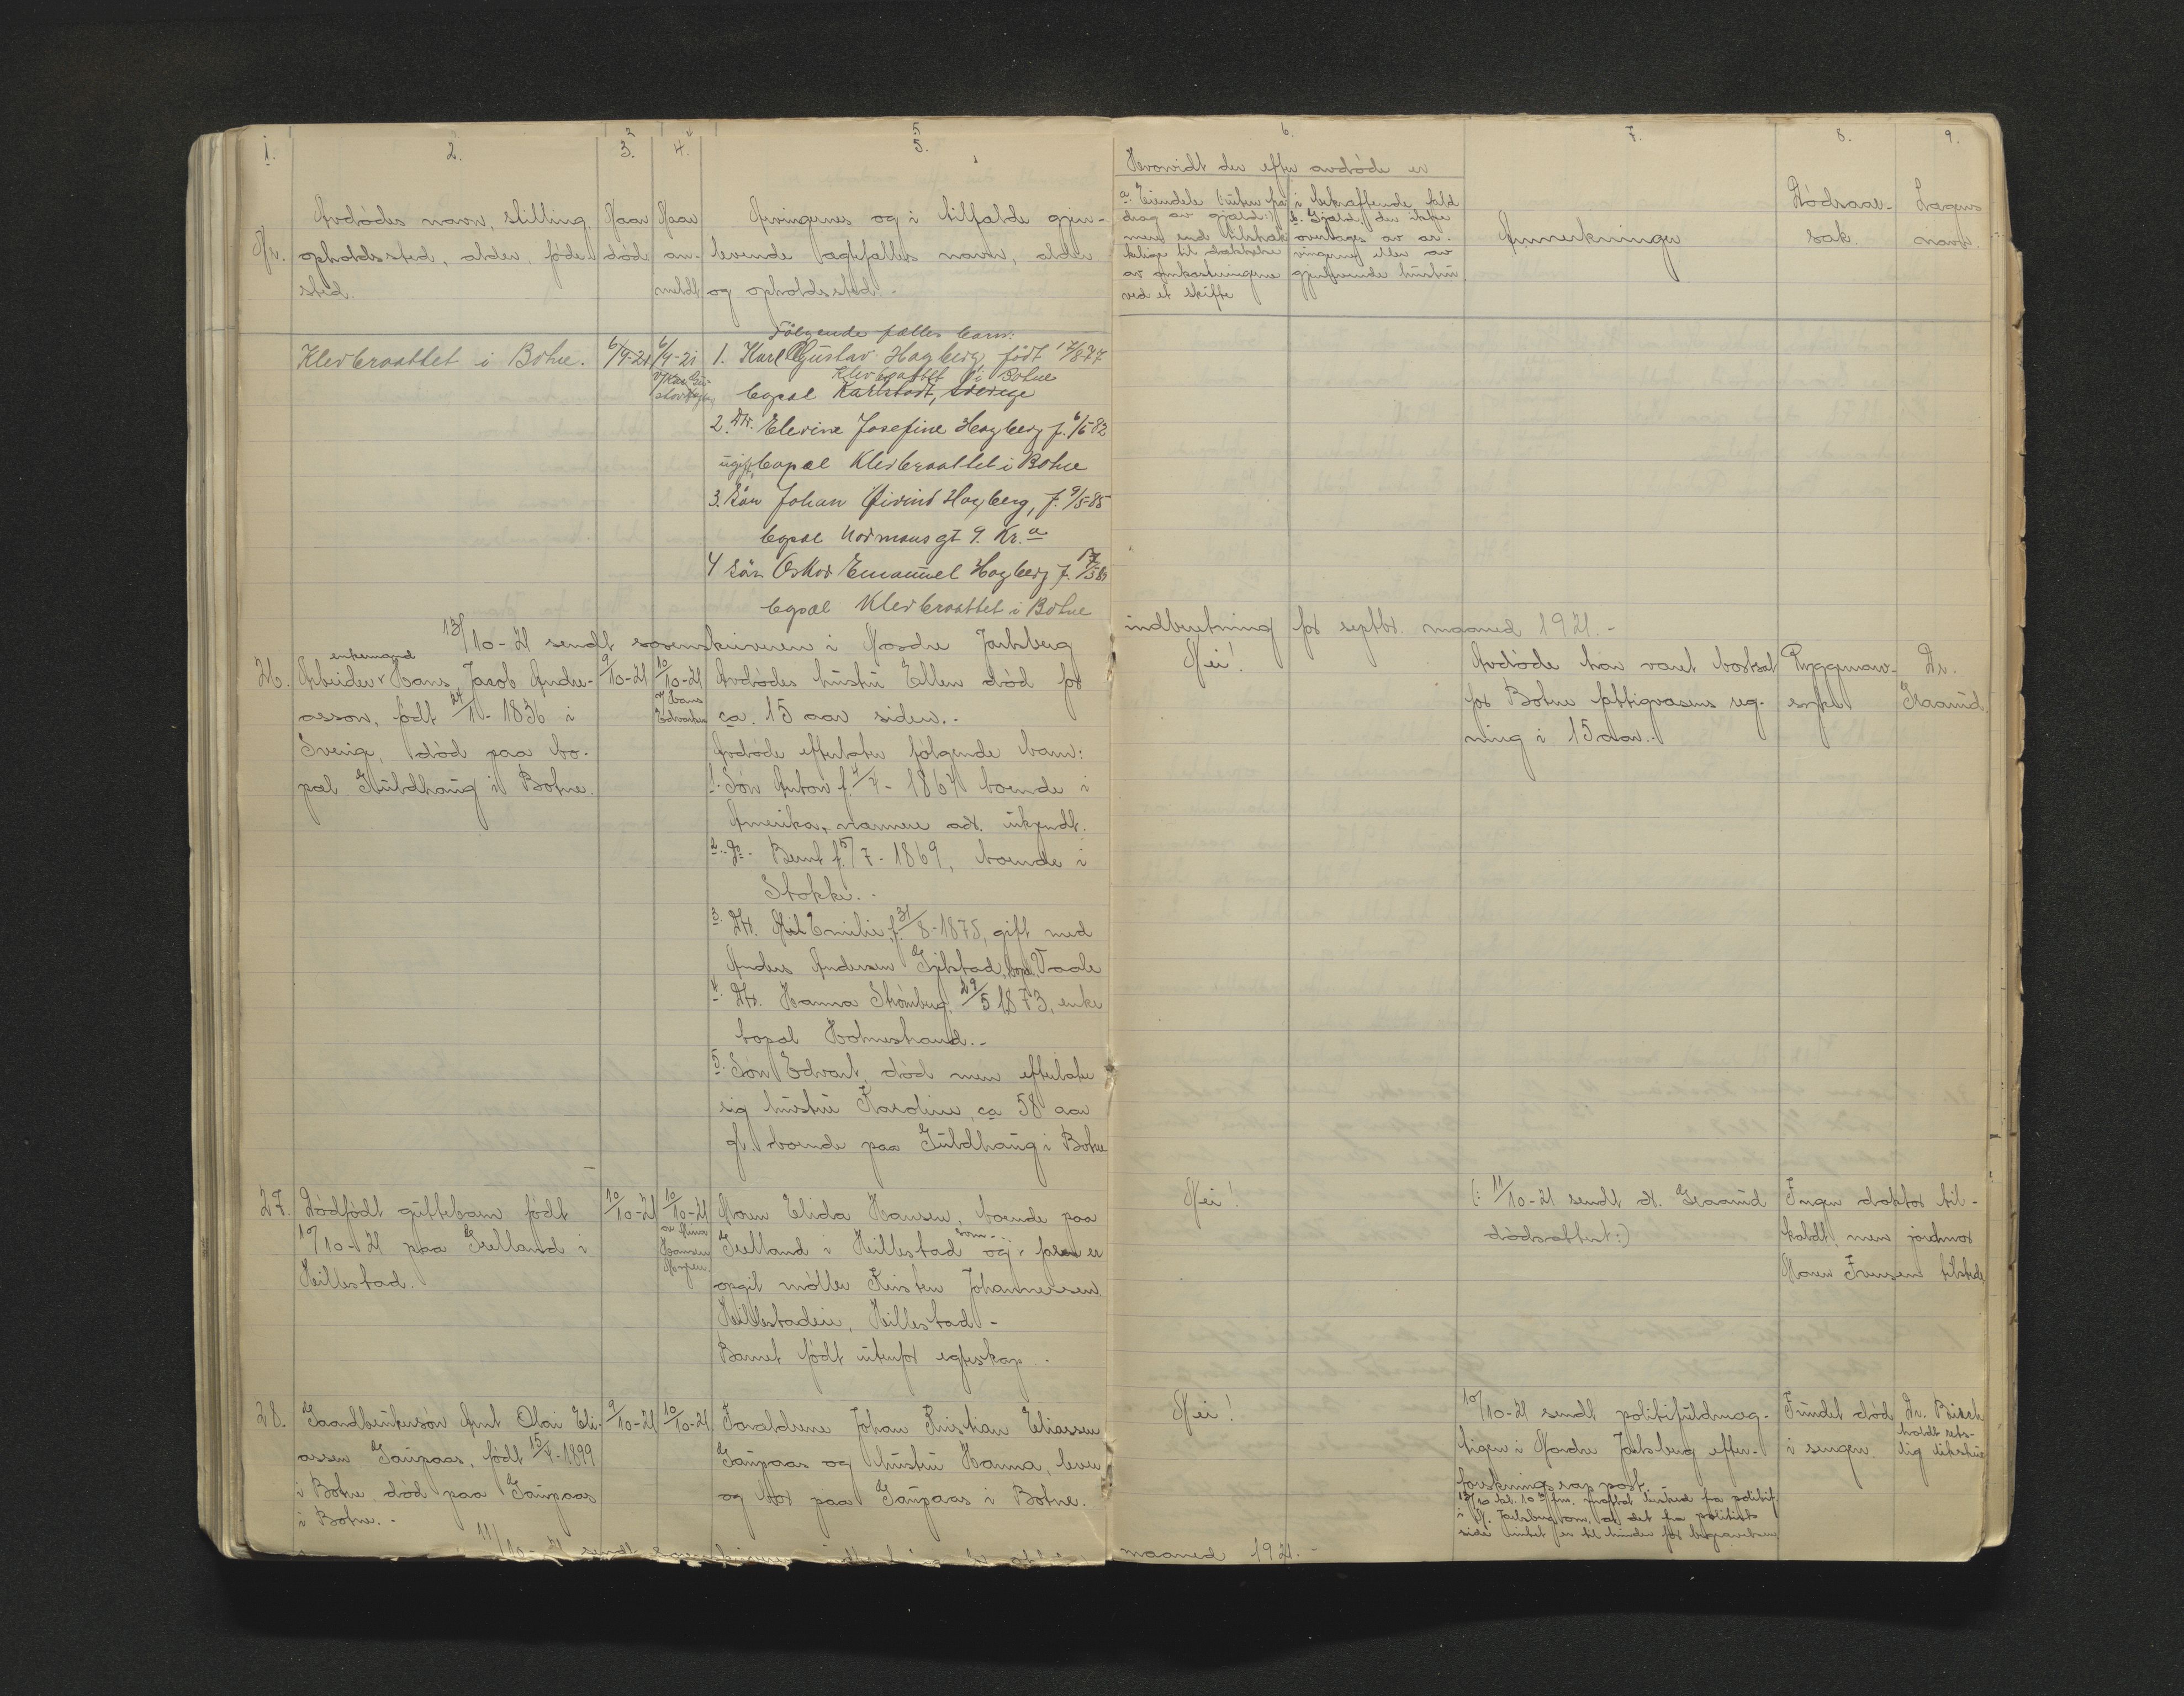 1. 2. 3. 4. 5. 6. 7. 8. 9.
Hvorvidt der efter avdøde er
Nr.
Avdødes navn, stilling,
opholdssted, alder, føde-
sted.
Naar
død
Naar
an-
meldt
Arvingernes og i tilfælde gjen-
levende ægtefælles navn, alder
og opholdssted.-
a. Eiendele (uten fra-
drag av gjæld:)
mere end tilstræk-
kelige til dækkelse
av omkostningene
ved et skifte
i bekræftende fald
b. Gjæld, der ikke
overtages av ar-
vingerne eller av
gjenlevende hustru
Anmerkninger
Dødsaar-
sak.
Lægens
navn.
Klevbraattet i Botne.
6/9-21
6/9-21
Følgende fælles barn:
1. Karl Gustav Hagberg født 17/8-77
Klevbraattet i Botne
bopæl Karlstadt, Sverige
2. Dtr. Elevine Josefine Hagberg f. 6/5-82
ugift, bopæl Klevbraattet i Botne
3. Søn Johan Øivind Hagberg, f. 9/5-85
bopæl Normansgt 9. Kr.a
4 Søn Oskar Emanuel Hagberg f.
bopæl Klevbraattet i Botne
13/10-21 sendt sorenskriveren i Nordre Jarlsberg indberetning for septbr. maaned 1921.-
26.
enkemand
Arbeider Hans Jacob Andre-
asson, født 24/ - 1836 i
Sverige, død paa bo-
pæl Guldhaug i Botne.
9/10-21
10/10-21
v/ Hans
Edvardsen
Avdødes hustru Ellen død for
ca. 15 aar siden.-
Avdøde efterlater følgende barn:
1. Søn Anton f. 4/4- 1864 boende i
Amerika, nærmere adr. ukjendt.
2. Do. Bernt f. 5/7- 1869, boende i
Stokke.-
3. Dtr. Emilie, f. 31/8-1875, gift med
Anders Andersen Gjelstad, bop. Vaale
4. Dtr. Hanna Strømberg, 29/5 1873, enke
bopæl Holmestrand.-
5. Søn Edvart, død men efterlater
sig hustru Karoline, ca 58 aar
gl. boende paa Guldhaug i Botne
Nei!
Avdøde har været bortsat
for Botne fattigvæsens reg-
ning i 15 aar.-
Ryggmarv-
syke
Dr.
Graarud.
27.
Dødfødt guttebarn født
10/10-21 paa Grelland i
Hillestad.
10/10-21
10/10-21
av
Hansen
Moren Elida Hansen, boende paa
Grelland i Hillestad og som far er
opgit møller Kristen Johannessen
Hillestad.-
Barnet født utenfor egteskap.-
Nei!
(: 11/10-21 sendt dr. Graarud
dødsattest:)
Ingen doktor til-
kaldt, men jordmor
Maren Iversen tilstede
28.
Gaardbrukersøn Arnt Olai Eli-
assen Gaupaas, født 15/4-1899
i Botne, død paa Gaupaas
i Botne.-
9/10-21
10/10-21
Forældrene Johan Kristian Eliassen
Gaupaas og hustru Hanna, lever
og bor paa Gaupaas i Botne.
Nei!
10/10-21 sendt politifuldmæg-
tigen i Nordre Jarlsberg efter-
forskningsrapport.
13/10 kl. 10 fm. mottat besked fra politif.
i N. Jarlsberg om, at det fra politiets
side intet er til hinder for begravelsen
Fundet død
i sengen.
Dr.
holdt rets-
lig likskue
11/10-21 sendt
maaned 1921.-